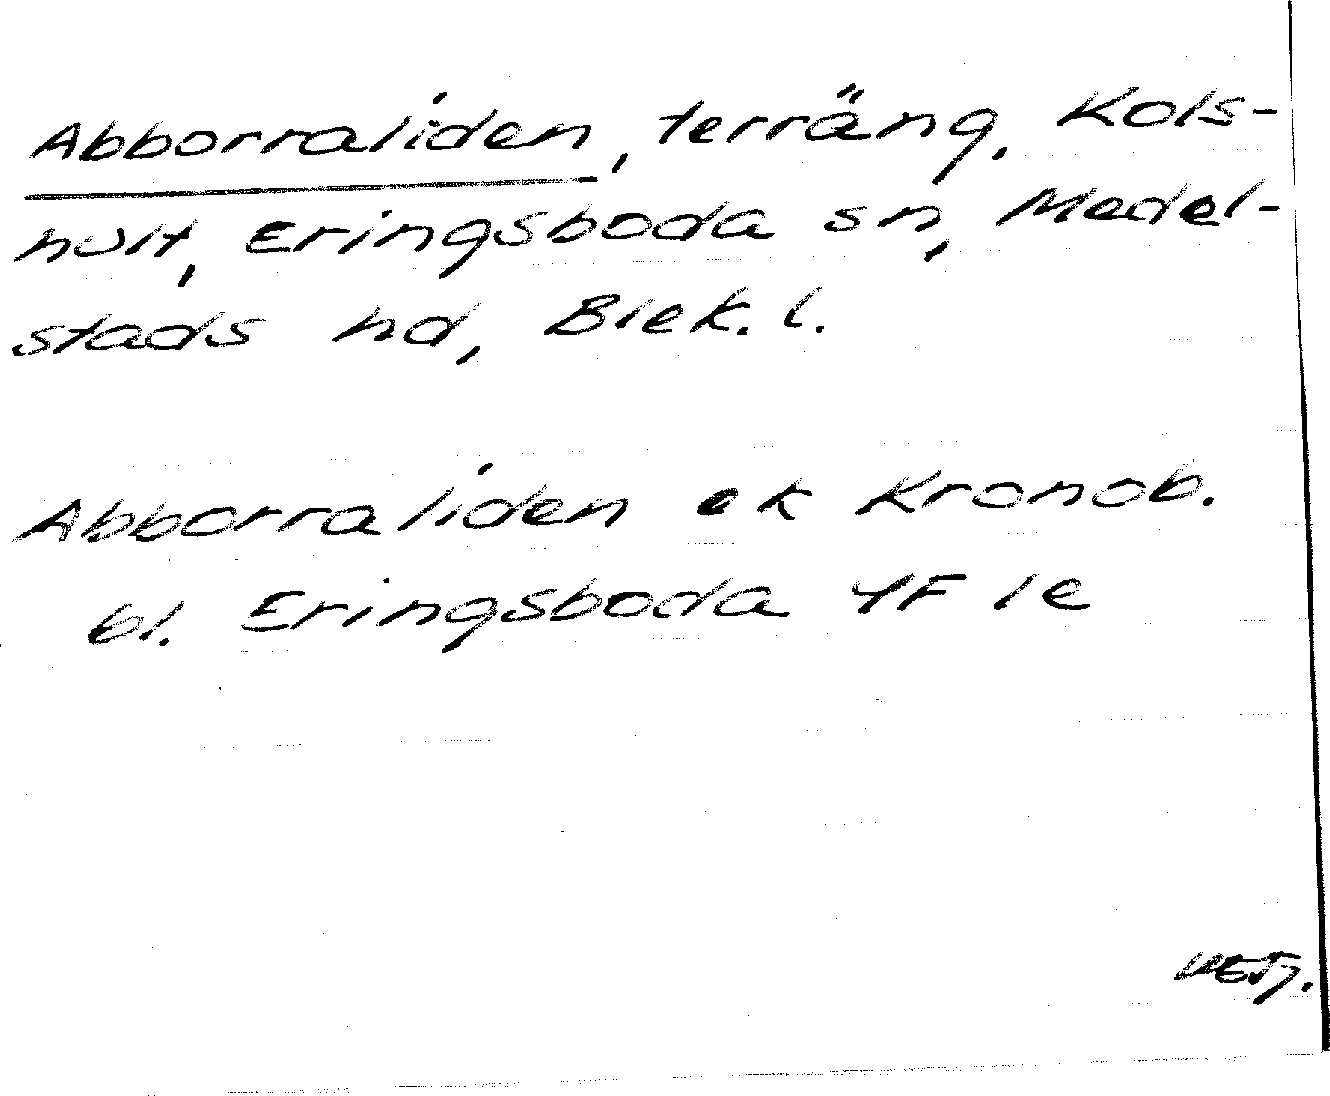 Abborraliden, terräng, Kols-
hult, Eringsboda sn, Medel-
stads hd, Blek. l.
Abborraliden ek Kronob.
bl. Eringsboda 4F 1e